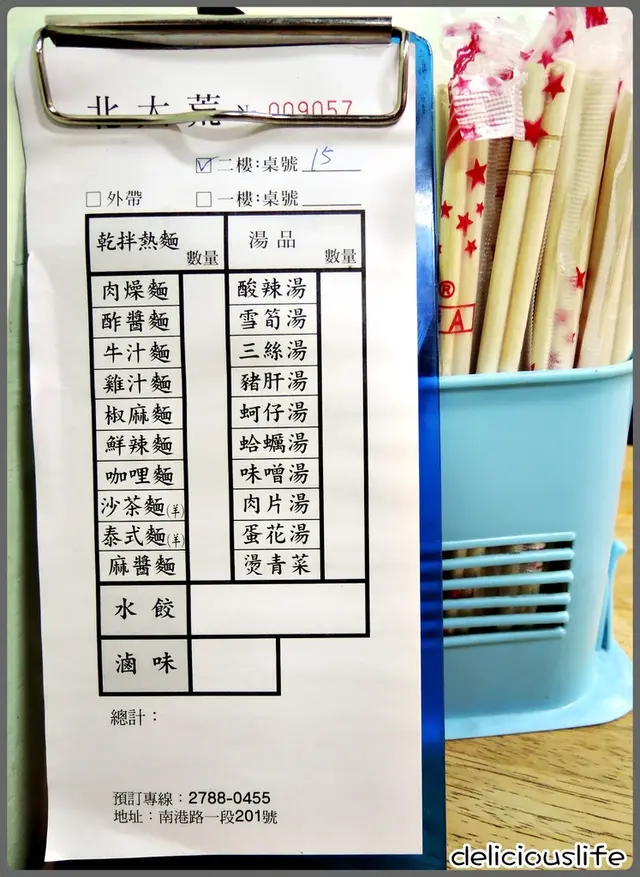 北大荒 № 009057
☑二樓:桌號 15
□外帶 □一樓:桌號
乾拌熱麵 數量 湯品 數量
肉燥麵 酸辣湯
酢醬麵 雪筍湯
牛汁麵 三絲湯
雞汁麵 豬肝湯
椒麻麵 蚵仔湯
鮮辣麵 蛤蠣湯
咖哩麵 味噌湯
沙茶麵(羊) 肉片湯
泰式麵(羊) 蛋花湯
麻醬麵 燙青菜
水餃
滷味
總計:
預訂專線:2788-0455
地址:南港路一段201號
® 
A
deliciouslife